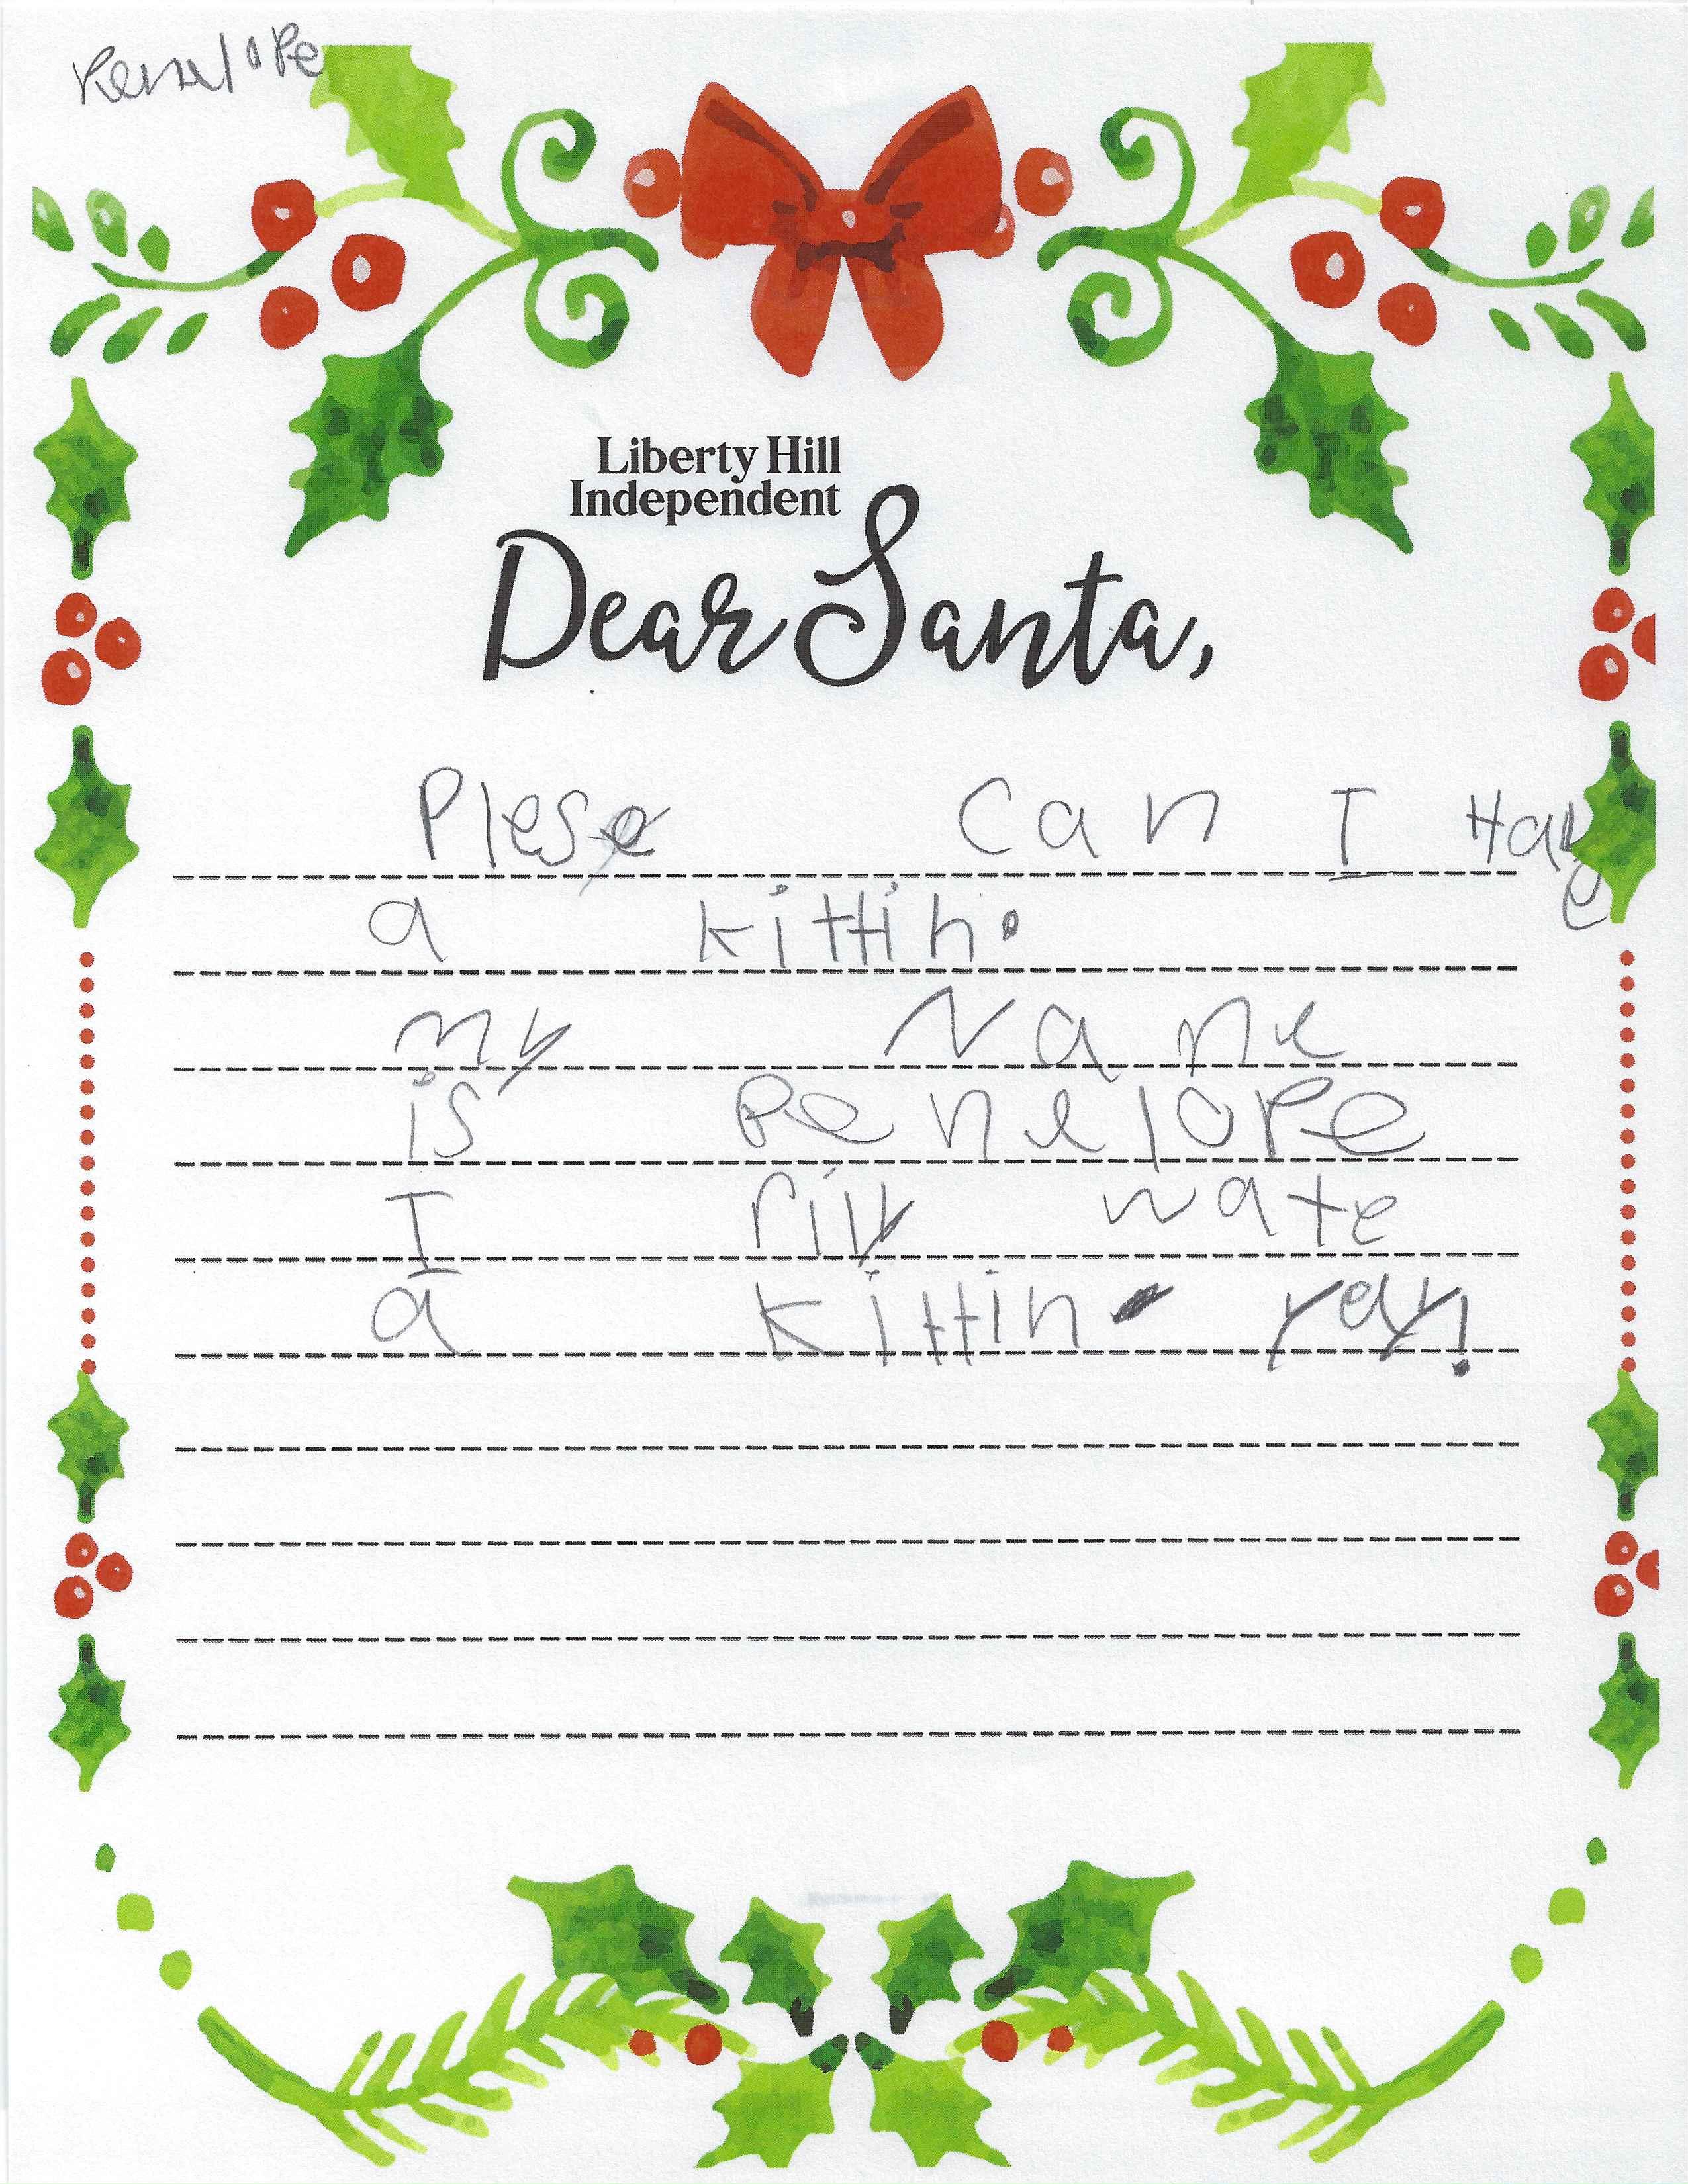 Penelope
Liberty Hill
Independent
Dear Santa,
Plese can I Have
a kittin.
my Name
is Penelope
I rily wate
a kittin. yay!